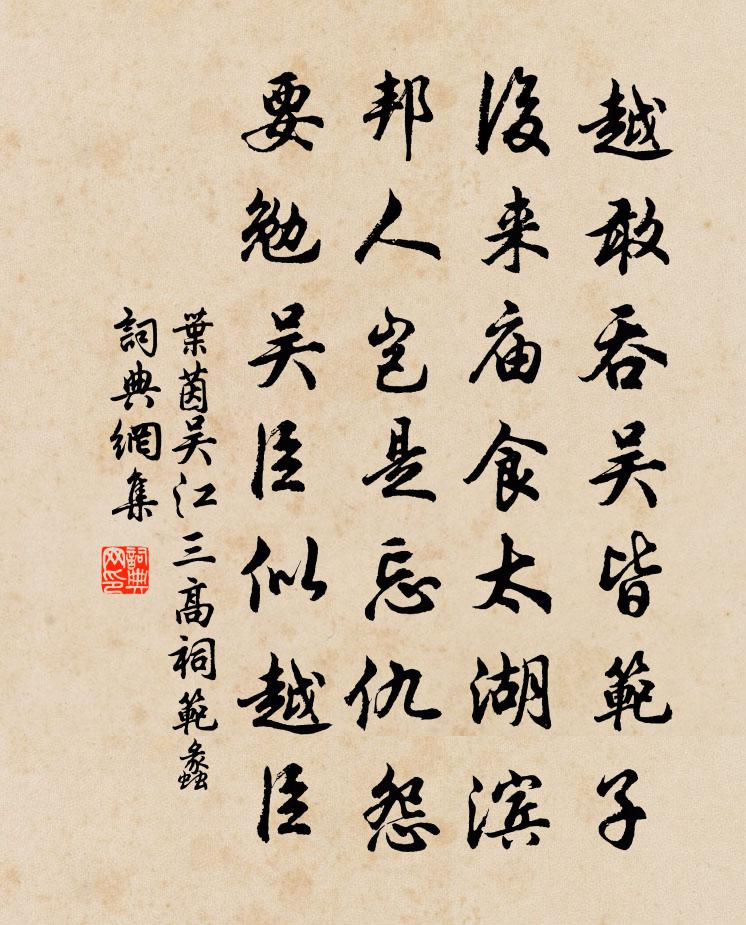 越敢吞吴皆範子
後来庙食太湖滨
邦人岂是忘仇怨
要勉吴臣似越臣
葉茵吴江三高祠範蠡
詞典網集
詞典网印